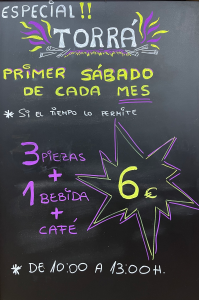 ESPECIAL!!
TORRÁ
PRIMER SÁBADO
DE CADA MES
* SI EL TIEMPO LO PERMITE
3 PIEZAS
+
1 BEBIDA
+
CAFÉ
6€
* DE 10:00 A 13:00H.